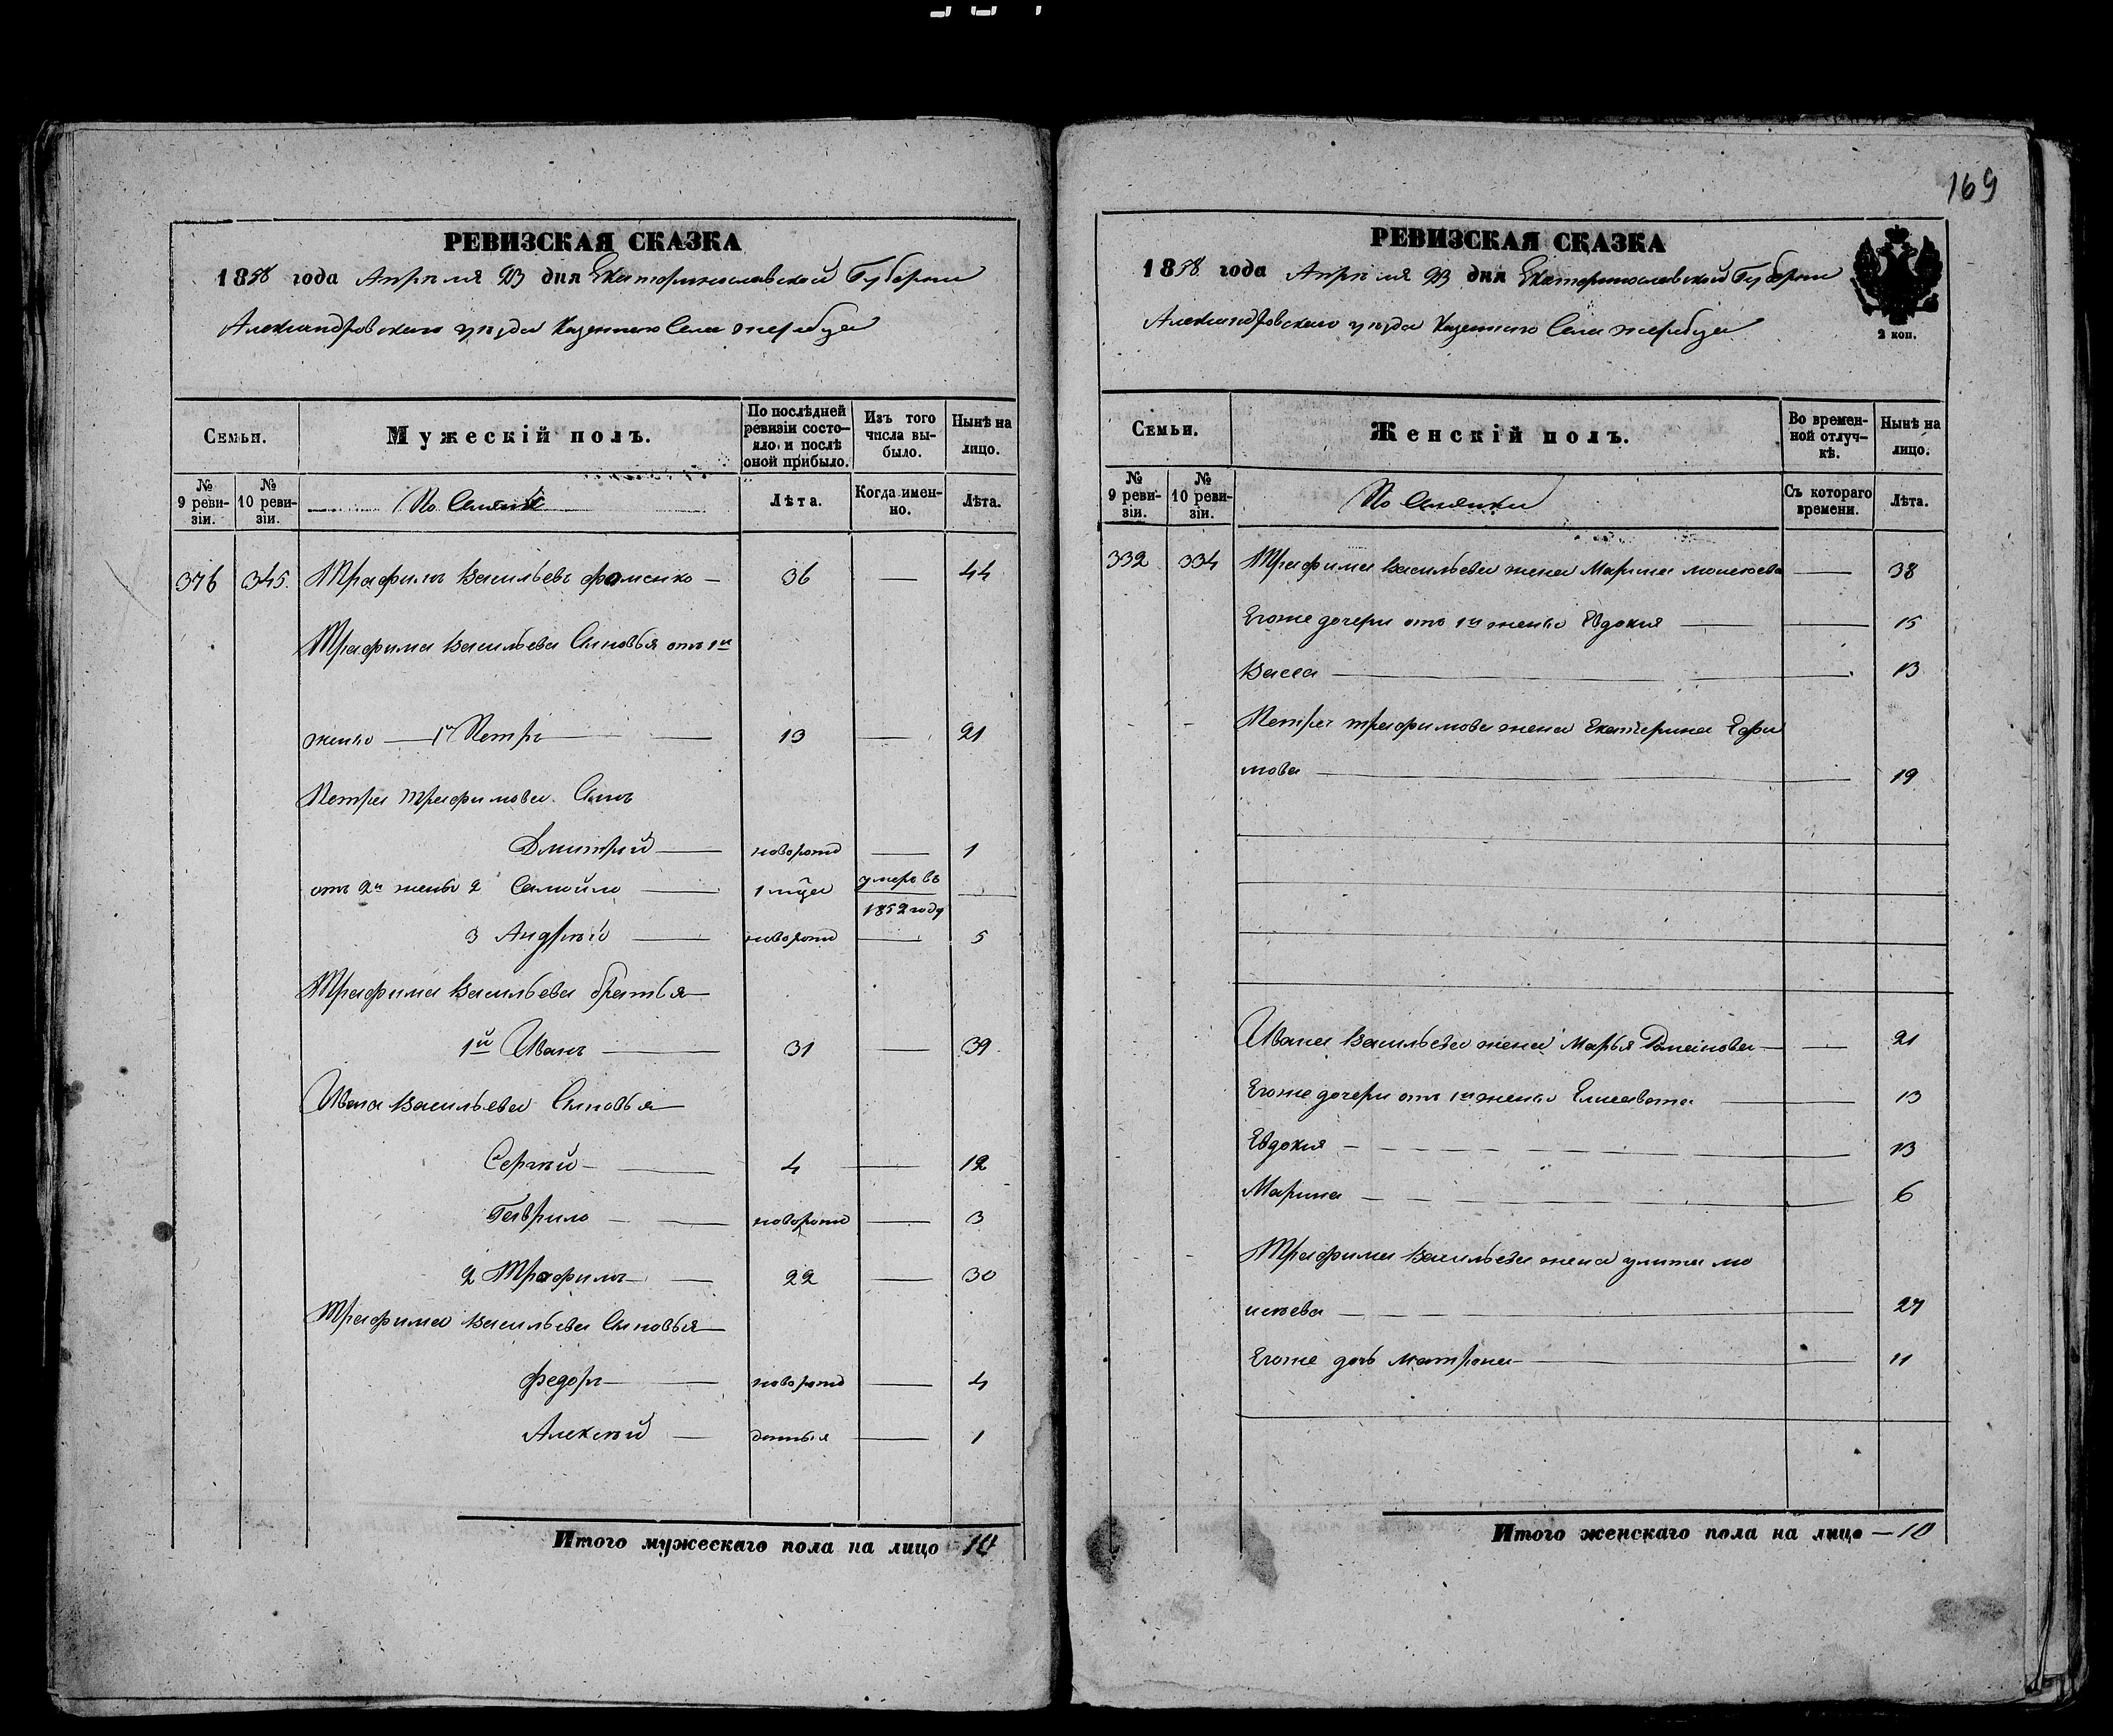 169
РЕВИЗСКАЯ СКАЗКА
1858 года Апреля 23 дня Екатеринославской Губернии
Александровского уезда Казенного Села Жеребца
Семьи.
Мужескій полъ.
По послѣдней ревизіи состояло и послѣ оной прибыло.
Изъ того числа выбыло.
Нынѣ на лицо.
№ 9 ревизіи.
№ 10 ревизіи.
Лѣта.
Когда именно.
Лѣта.
376 345 Трафимъ Васильевъ Фоменко — 36 — 44
Трафима Васильева Сыновья отъ 1й
жены — 1й Петръ — 13 — 21
Петра Трафимова Сынъ
Дмитрій — новорожд — 1
отъ 2й жены 2 Самойло — 1 мца умеръ въ 1852 году —
3 Андрѣй — новорожд — 5
Трафима Васильева братья —
1й Иванъ — 31 — 39
Ивана Васильева Сыновья —
Сергѣй — 4 — 12
Гаврило — новорожд — 3
2 Трофимъ — 22 — 30
Трафима Васильева Сыновья —
Федоръ — новорожд — 4
Алексѣй — — 1
Итого мужескаго пола на лицо 10
РЕВИЗСКАЯ СКАЗКА
1858 года Апреля 23 дня Екатеринославской Губернии
Александровского уезда Казенного Села Жеребца
2 коп.
Семьи.
Женскій полъ.
Во временной отлучкѣ.
Нынѣ на лицо.
№ 9 ревизіи.
№ 10 ревизіи.
Съ котораго времени.
Лѣта.
332 334 Трафима Васильева жена Марина — 38
Егоже дочери отъ 1й жены Евдокия — — 15
Васса — 13
Петра Трафимова жена Екатерина Ефи
мова — 19
Ивана Васильева жена Марья — — 21
Егоже дочери отъ 1й жены Елисавета — 13
Евдокия — 13
Марина — 6
Трафима Васильева жена Улита Мо
исеева — 27
Егоже дочь Матрона — 11
Итого женскаго пола на лицо — 10